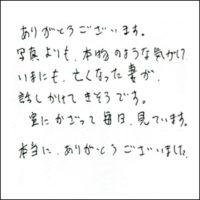 ありがとうございます。
写真よりも、本物のような気がして
いまにも、亡くなった妻が、
話しかけてきそうです。
室にかざって毎日、見ています。
本当に、ありがとうございました。